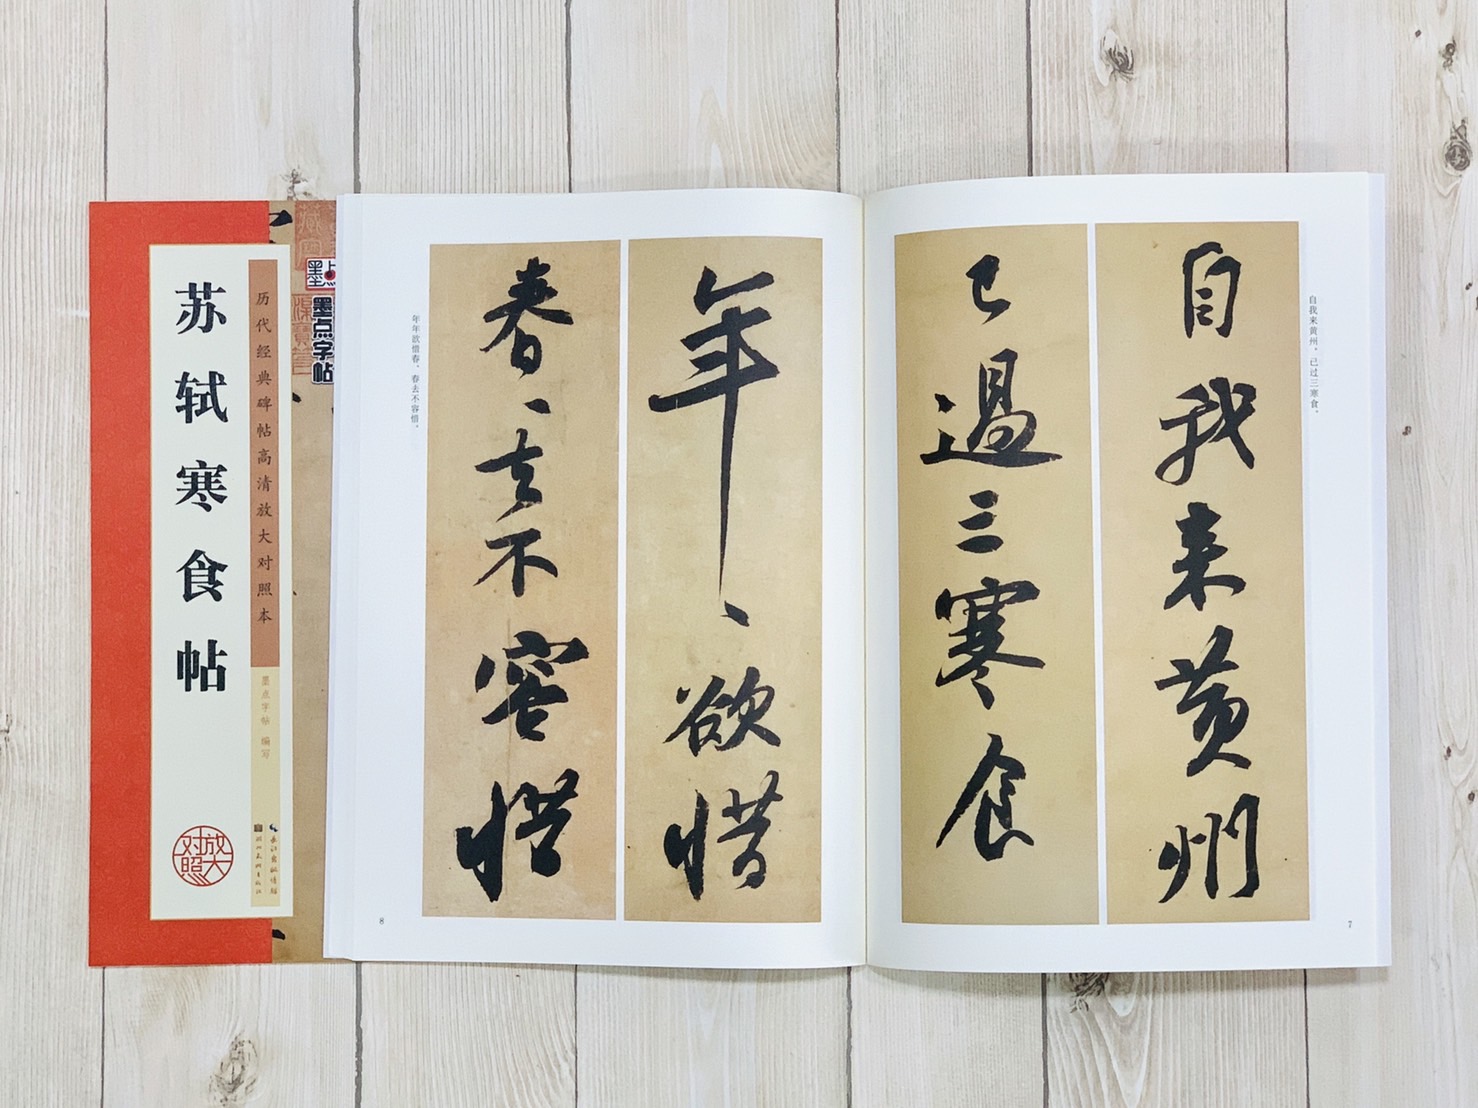 苏轼寒食帖
历代经典碑帖高清放大对照本
墨点字帖 编写
放大对照
墨点
墨点字帖
自我来黄州,已过三寒食。
自我来黄州
已過三寒食
7
年、欲惜
春、去不容惜
年年欲惜春,春去不容惜。
8